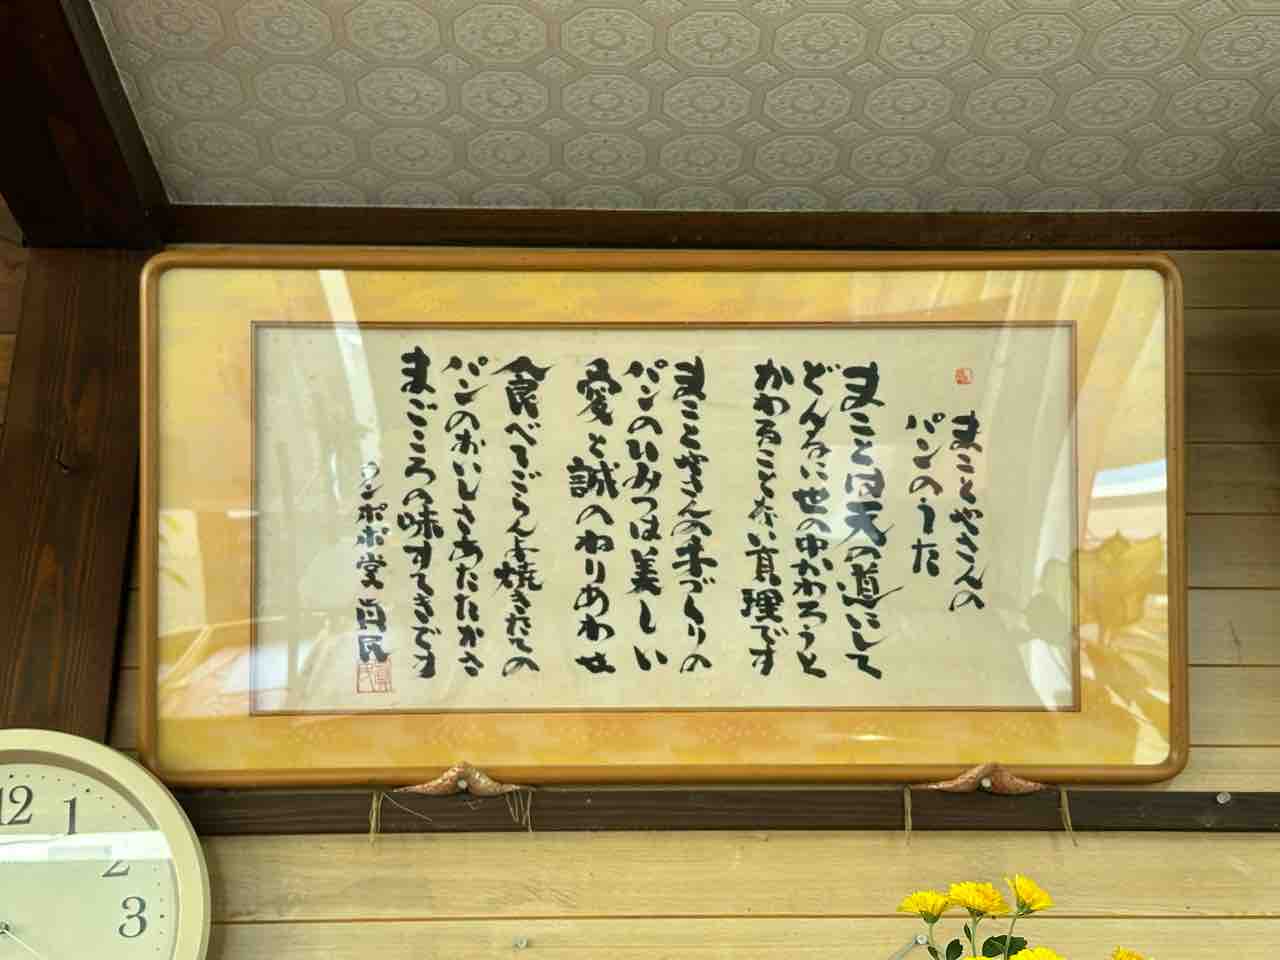 まことやさんの
パンのうた
まことは天の道にして
どんなに世の中かわろうと
かわることない真理です
まことやさんの手づくりの
パンのひみつは美しい
愛と誠のねりあわせ
食べてごらんよ焼きたての
パンのおいしさあたたかさ
まごころの味すてきです
タンポポ堂 真民
12
1
2
3